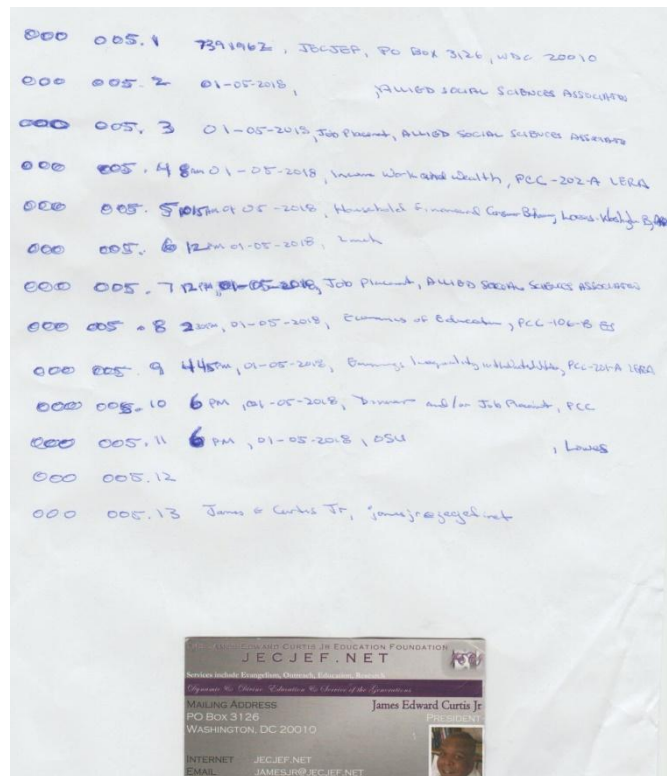 000 005.1 7391962, JECJEF, PO Box 3126, WDC 20010
000 005.2 01-05-2018, ALLIED SOCIAL SCIENCES ASSOCIATION
000 005.3 01-05-2018, Job Placement, ALLIED SOCIAL SCIENCES ASSOCIATION
000 005.4 8am 01-05-2018, Income Work and Wealth, PCC-202-A LERA
000 005.5 1015am 01-05-2018, Household Finance and Consumer Behavior, Loews
000 005.6 12PM 01-05-2018, Lunch
000 005.7 12PM, 01-05-2018, Job Placement, ALLIED SOCIAL SCIENCES ASSOCIATION
000 005.8 01-05-2018, Economics of Education, PCC-106-B ES
000 005.9 445PM, 01-05-2018, Earnings Inequality in the United States, PCC-201-A LERA
000 005.10 6 PM, 01-05-2018, Dinner and/or Job Placement, PCC
000 005.11 6 PM, 01-05-2018, OSU , Loews
000 005.12
000 005.13 James E Curtis Jr, jamesjr@jecjef.net
JAMES EDWARD CURTIS JR EDUCATION FOUNDATION
JECJEF.NET
Services include Evangelism, Outreach, Education, Research
Dynamic & Divine Education & Service of the Generations
MAILING ADDRESS
PO BOX 3126
WASHINGTON, DC 20010
James Edward Curtis Jr
PRESIDENT
INTERNET JECJEF.NET
EMAIL JAMESJR@JECJEF.NET